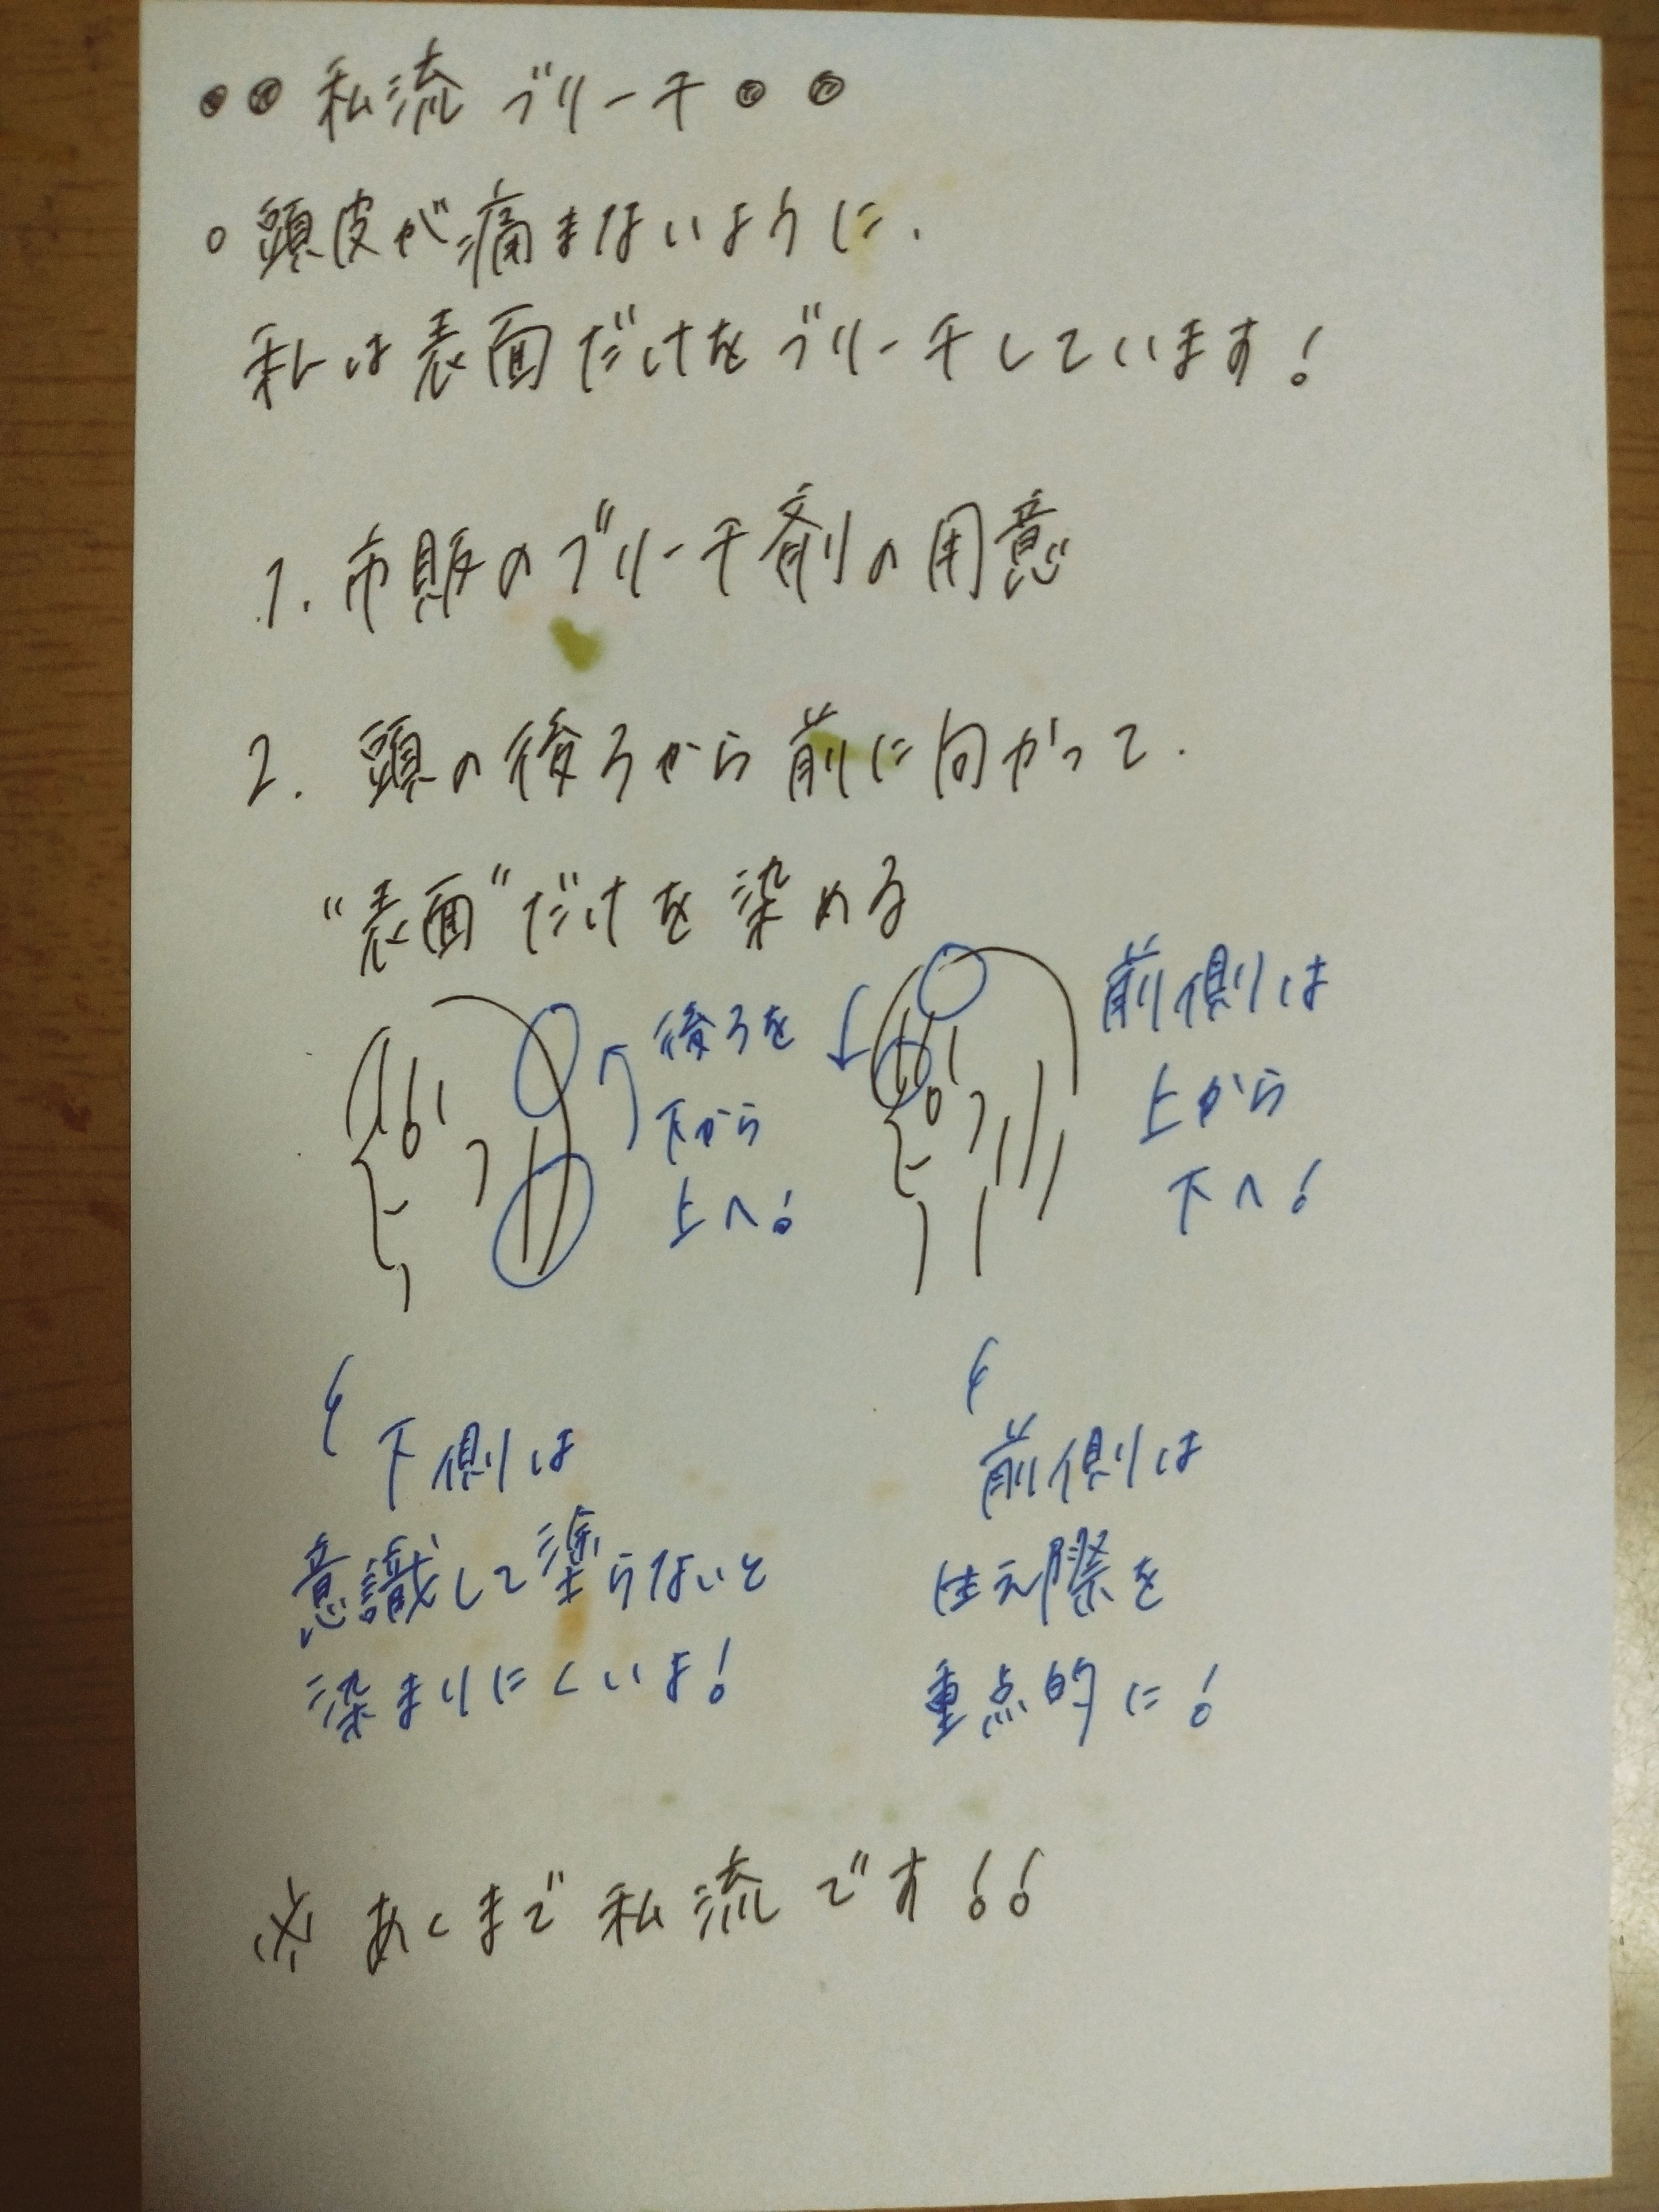 ◎◎私流 ブリーチ◎◎
○頭皮が痛まないように、
私は表面だけをブリーチしています!
1. 市販のブリーチ剤の用意
2. 頭の後ろから前に向かって、
"表面"だけを染める
後ろを
下から
上へ!
前側は
上から
下へ!
下側は
意識して塗らないと
染まりにくいよ!
前側は
生え際を
重点的に!
※あくまで私流です!!